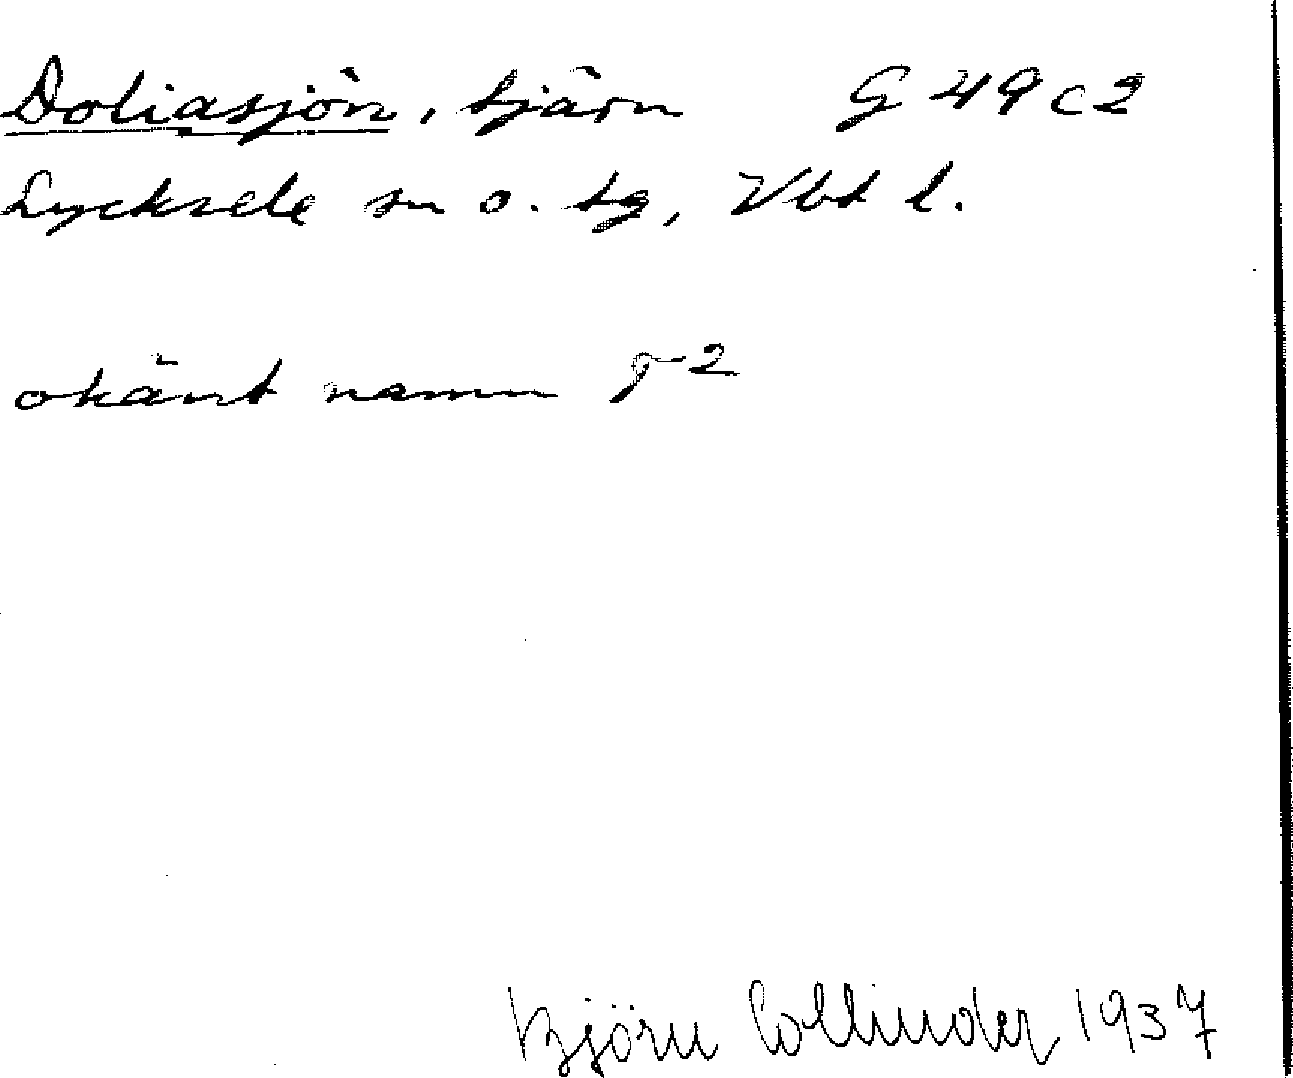 Doliasjön, tjärn G 49 c 2
Lycksele sn o. tg, Vbt l.
okänt namn
Björn Collinder 1937